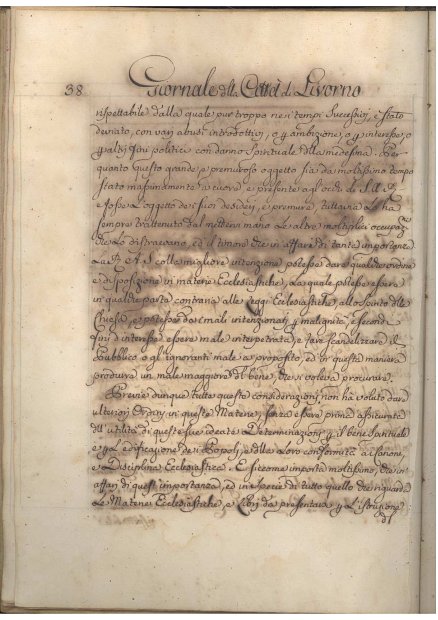 38. Giornale della Città di Livorno
rispettabile dalla quale pur troppo nei tempi successivi, è stato
deviato, con varj abusi introdottivi, o p ambizione, o p interesse, o
p altri fini politici con danno spirituale della medesima. Per
quanto questo grande, e premuroso oggetto sia da moltissimo tempo
stato massimamente a cuore, e presente agl'occhi di S. A. R.
e fosse l'oggetto dei suoi desiderj, e premure, tuttavia Lo ha
sempre trattenuto dal mettervi mano Le altre moltiplici occupaz.
che Lo distraevano, ed il timore che in affari di tanta importanza
La R. A. S. colle migliori intenzioni potesse dare qualche ordine
e disposizione in materie Ecclesiastiche, La quale potesse essere
in qualche parte contraria alle Leggi Ecclesiastiche allo Spirito della
Chiesa, e potesse poi i mali intenzionati p malignità, e secondi
fini d'interesse essere male interpetrata, e fare scandelizzare il
Pubblico o gl'ignoranti male a proposito, ed in questa maniera
produrre un male maggiore del bene, che si voleva procurare.
Previe dunque tutte queste considerazioni non ha voluto dare
ulteriori Ordini in queste Materie, senza essere prima assicurata
dell'utilità di queste sue ideate Determinazioni p il bene spirituale
e p l'edificazione dei Popoli, e della Loro conformità ai Canoni,
e Disciplina Ecclesiastica. E siccome importa moltissimo, che in
affari di quest'importanza, ed in specie di tutto quello che riguarda
Le Materie Ecclesiastiche, e Libri da presentarsi p L'istruzione